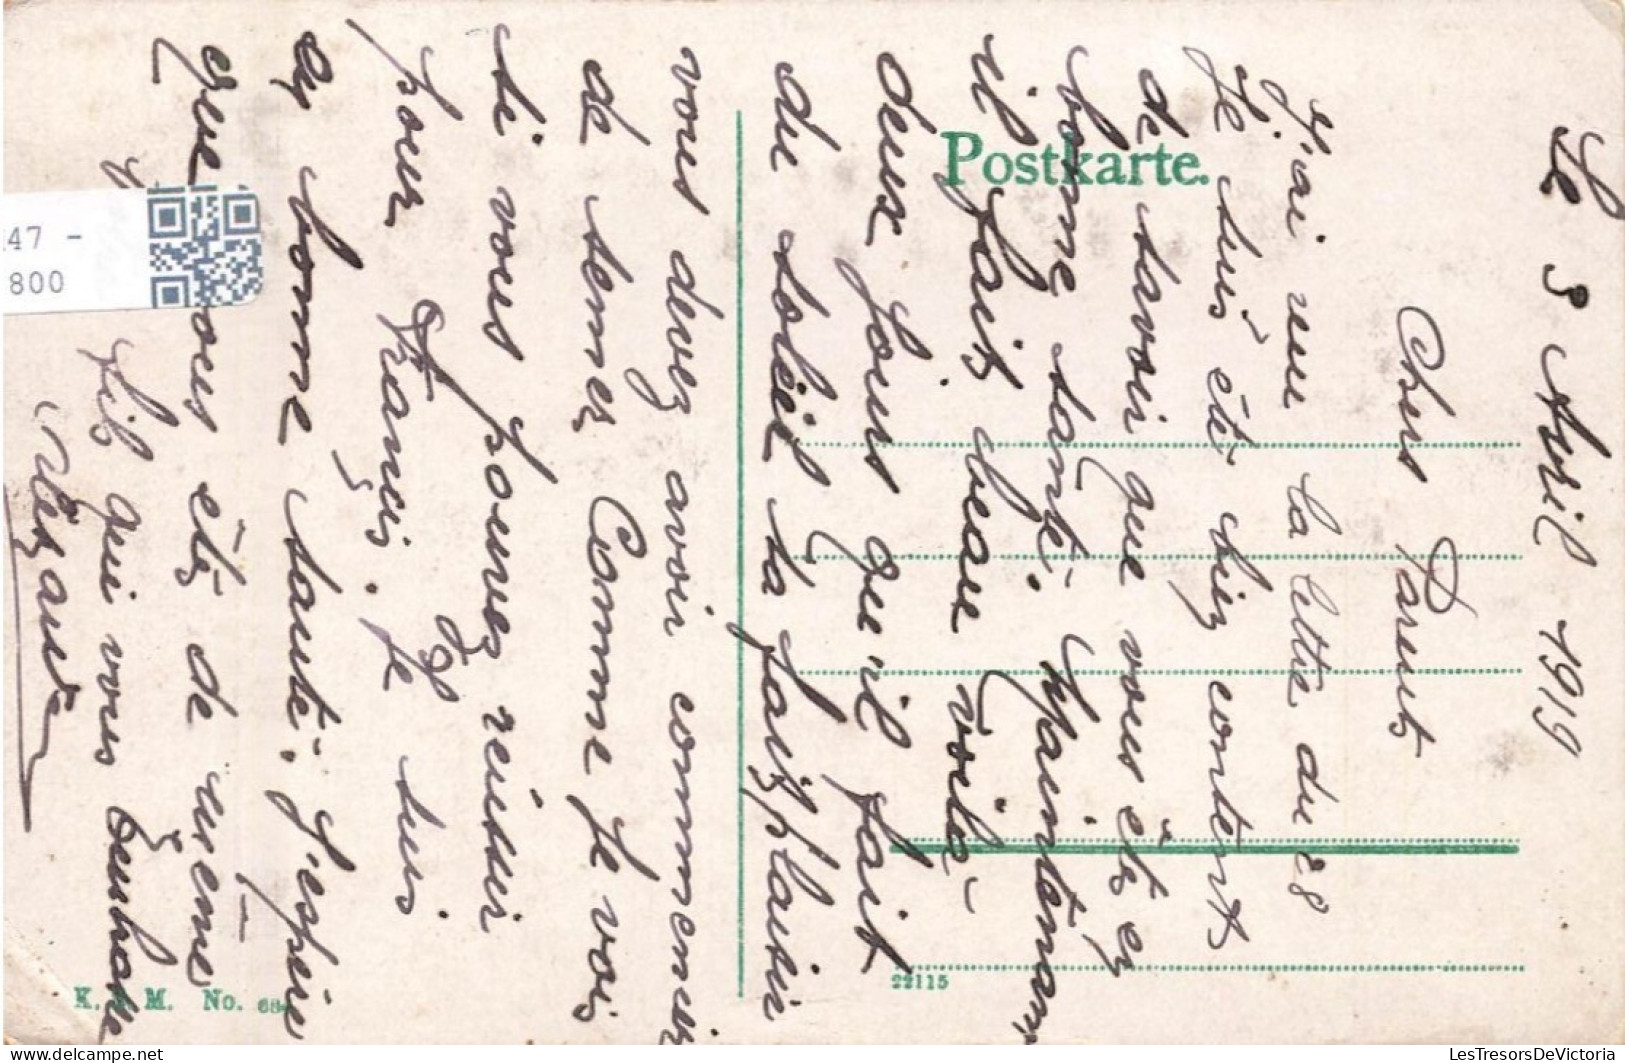 Le 3 Avril 1919
Chers Parents
J'ai reçu la lettre du 28
Je suis été bien content
de savoir que vous ête en
bonne santé. Maintenant
il fait beau voila
deux jours que'il fait
du soleil sa fait plaisir
vous devez avoir commencer
de semer Comme je vois
si vous pouvez réussir
pour Françis. Je suis
en bonne santé. J'espère
que vous ête de même
fils qui vous embrasse
Postkarte.
22115
K. M. No.
147 -
800
LesTresorsDeVictoria
LesTresorsDeVictoria